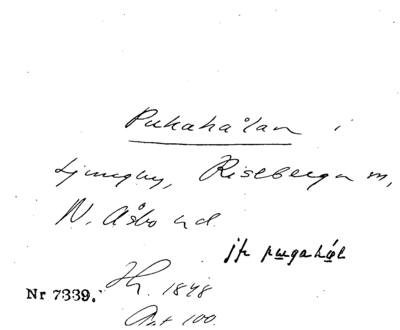 Pukahålan i
Ljungby, Riseberga sn,
N. Åsbo hd.
jfr pugahål
Nr 7339.
Hy. 1848
Ant 100.